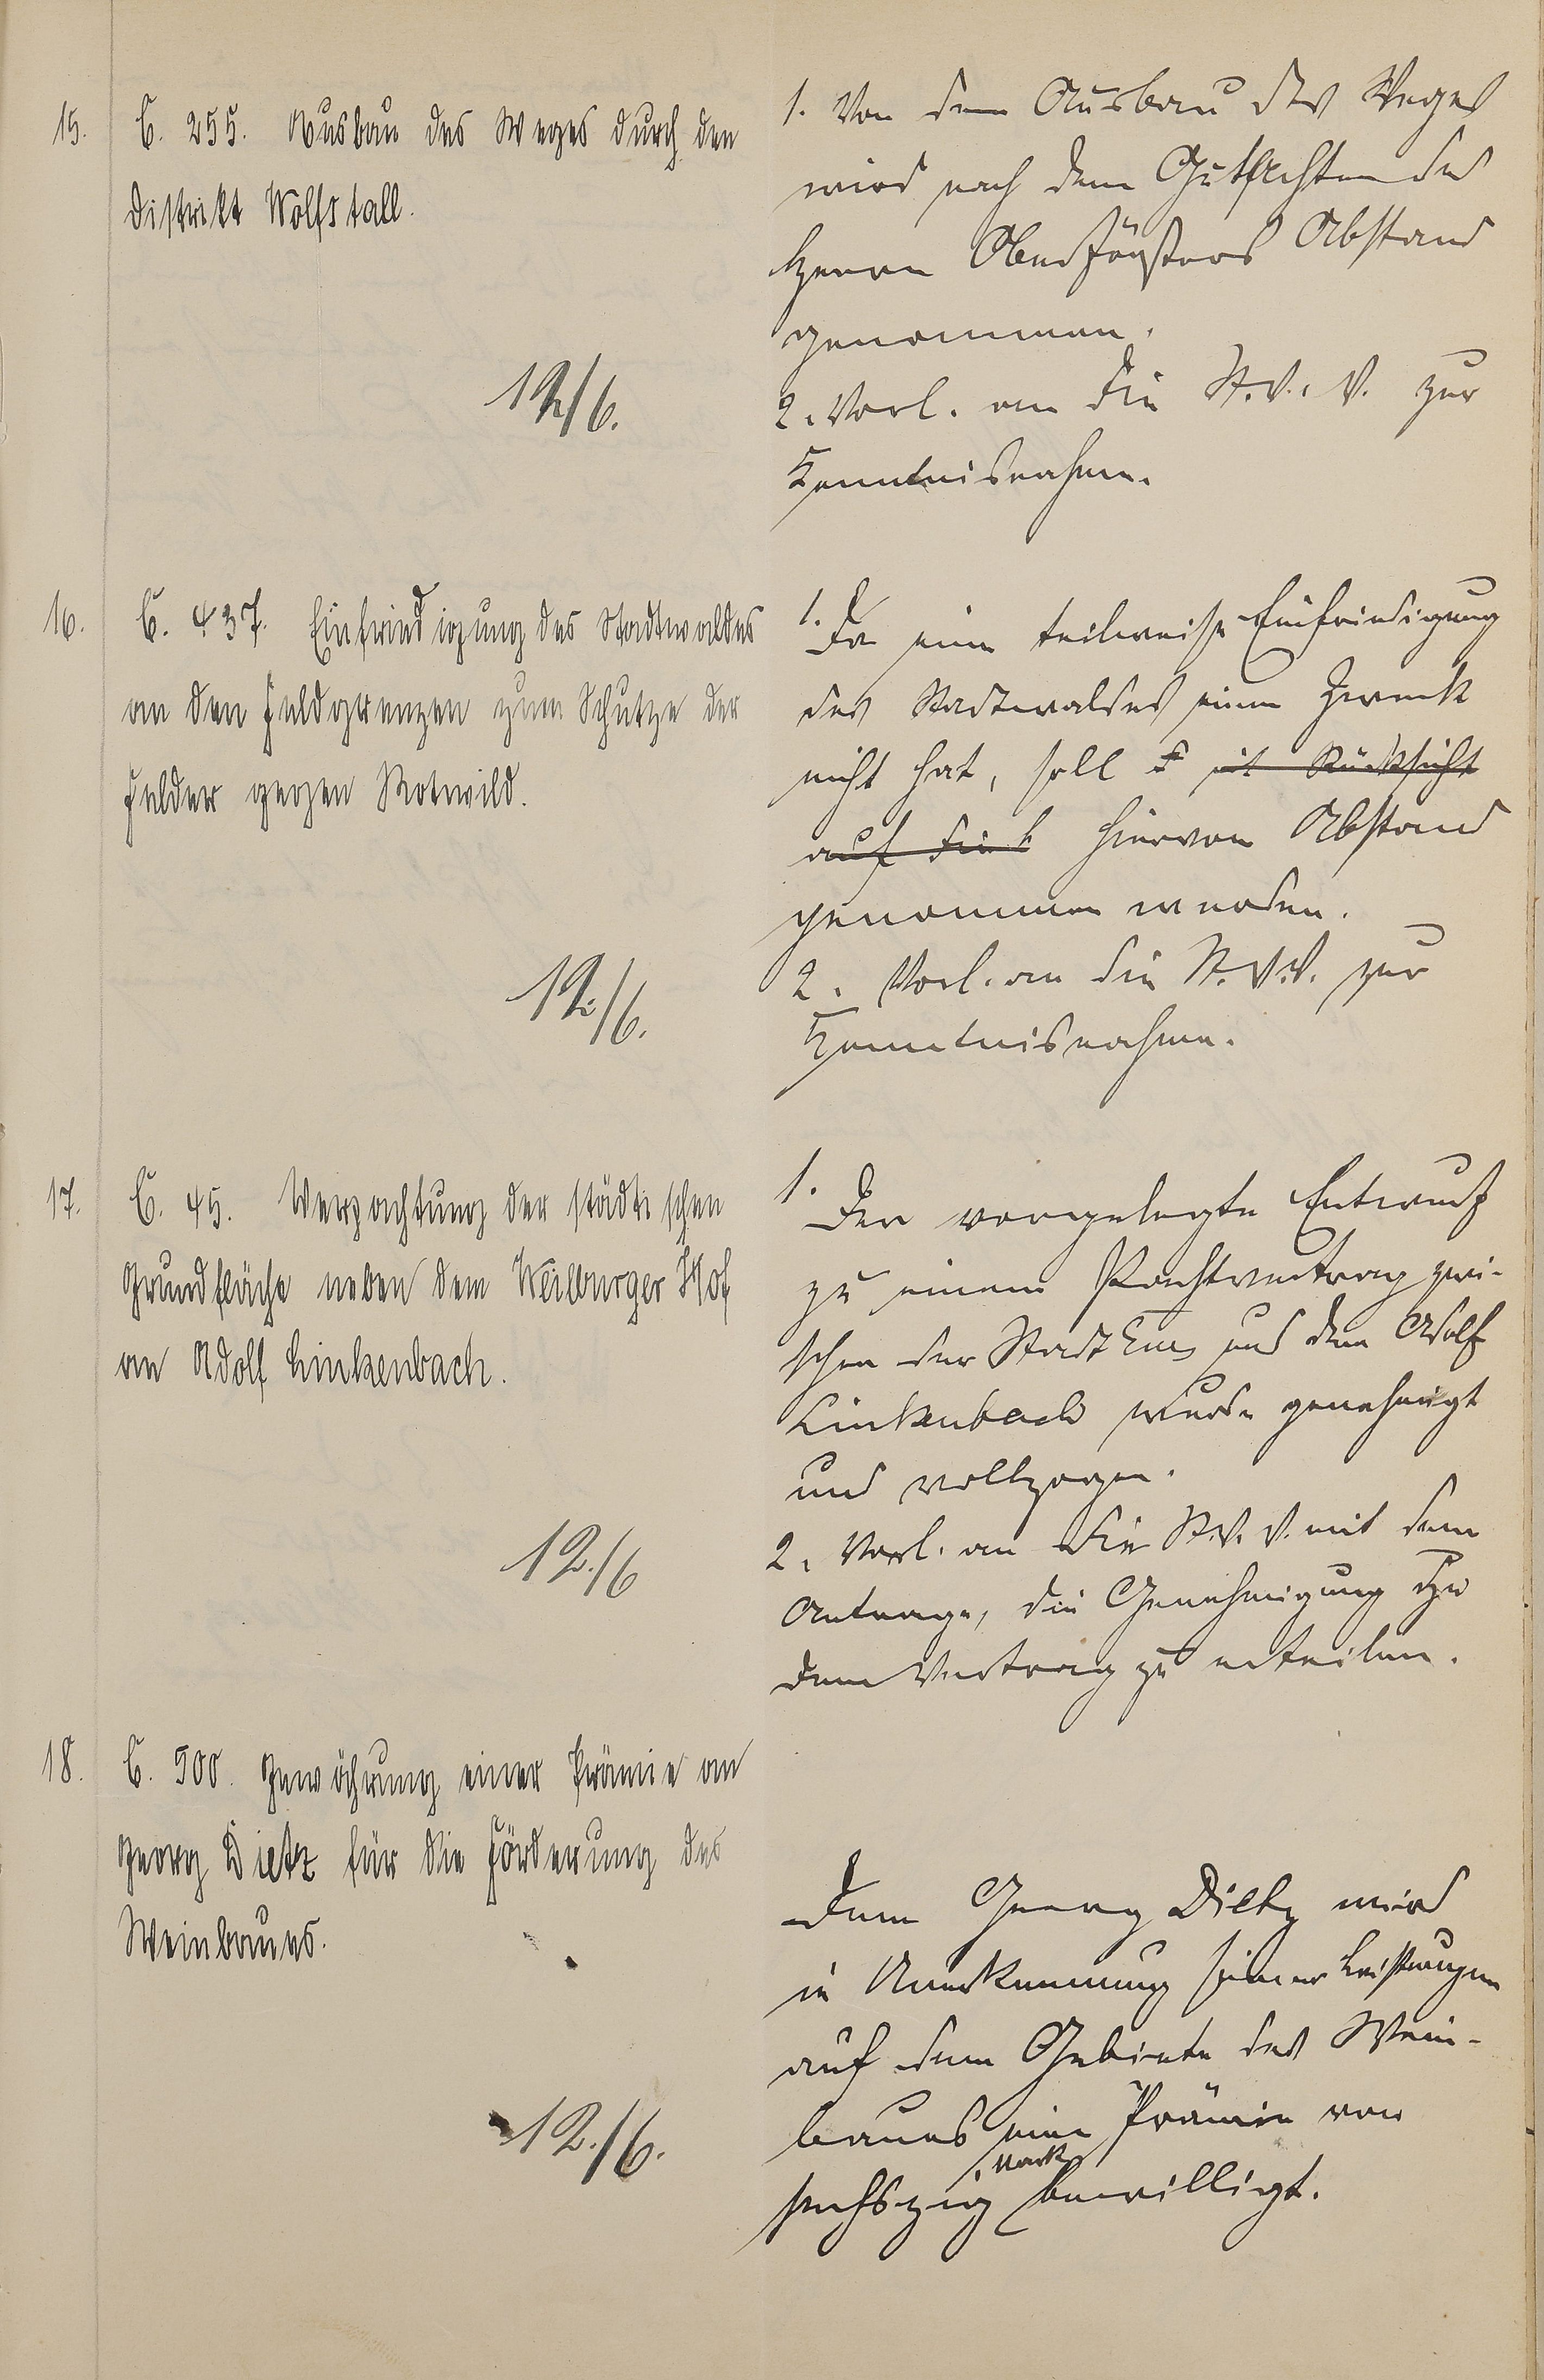 15.
C. 255. Ausbau des Weges durch den
Distrikt Wolfstall.
12/6.
1. Von dem Ausbau des Weges
wird nach dem Gutachten des
Herrn Oberförsters Abstand
genommen.
2. Vorl. an die St.V.V. zur
Kenntnisnahme.
16.
C. 437. Einfriedigung des Stadtwaldes
an den Feldgrenzen zum Schutze der
Felder gegen Rotwild.
12./6.
1. Da eine teilweise Einfriedigung
des Stadtwaldes einen Zweck
nicht hat, soll mit Rücksicht
auf die hiervon Abstand
genommen werden.
2. Vorl. an die St.V.V. zur
Kenntnisnahme.
17.
C. 45. Verpachtung der städtischen
Grundfläche neben dem Weilburger Hof
an Adolf Linkenbach.
12./6
1. Der vorgelegte Entwurf
zu einem Pachtvertrag zwi-
schen der Stadt Ems und dem Adolf
Linkenbach wurde genehmigt
und vollzogen.
2. Vorl. an die St.V.V. mit dem
Antrage, die Genehmigung zu
dem Vertrag zu erteilen.
18.
C. 500. Gewährung einer Prämie an
Georg Dietz für die Förderung des
Weinbaues.
12./6.
Dem Georg Dietz wird
in Anerkennung seiner Leistungen
auf dem Gebiete des Wein-
baues eine Prämie von
sechszig Mark bewilligt.